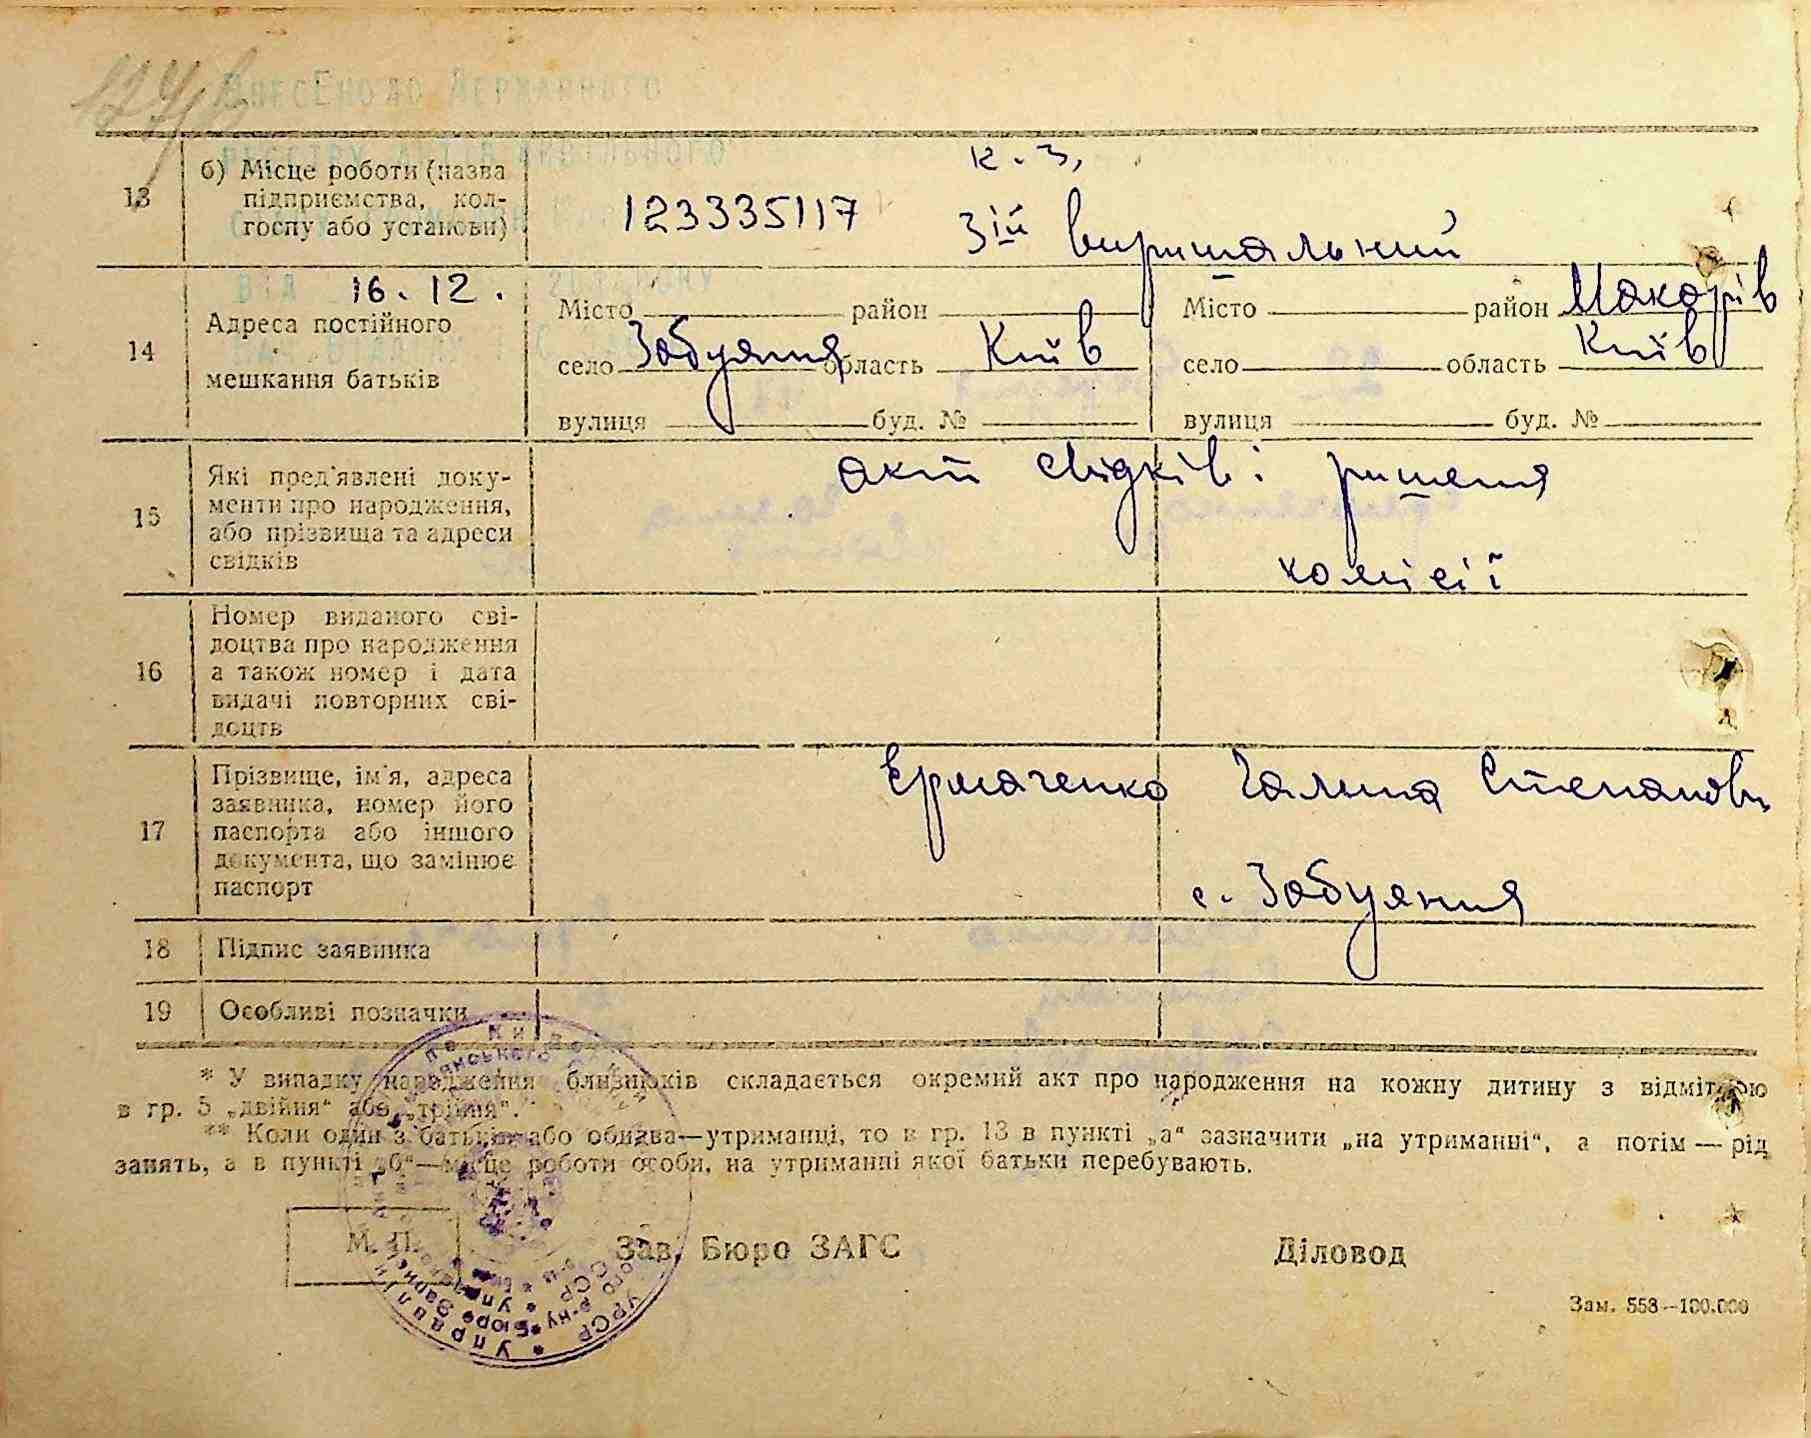 Внесено до державного
13
б) Місце роботи (назва
підприємства, кол-
госпу або установи)
123335117
к-з,
3ій вирішальный
від 16.12.
14
Адреса постійного
мешкання батьків
Місто район
село Забуяння область Київ
вулиця буд. №
Місто район Макарів
село область Київ
вулиця буд. №
15
Які пред'явлені доку-
менти про народження,
або прізвища та адреси
свідків
акт свідків і рішення
комісії
16
Номер виданого сві-
доцтва про народження
а також номер і дата
видачі повторних сві-
доцтв
17
Прізвище, ім'я, адреса
заявника, номер його
паспорта або іншого
документа, що замінює
паспорт
Ермаченко Галина Степановн
с. Забуяння
18
Підпис заявника
19
Особливі позначки
* У випадку народження близнюків складається окремий акт про народження на кожну дитину з відміткою
в гр. 5 „двійня“ або „трійня“.
** Коли один з батьків або обидва—утриманці, то в гр. 13 в пункті „а“ зазначити „на утриманні“, а потім — рід
занять, а в пункті „б“—місце роботи особи, на утриманні якої батьки перебувають.
М. П.
Зав. Бюро ЗАГС
Діловод
Зам. 558—100.000